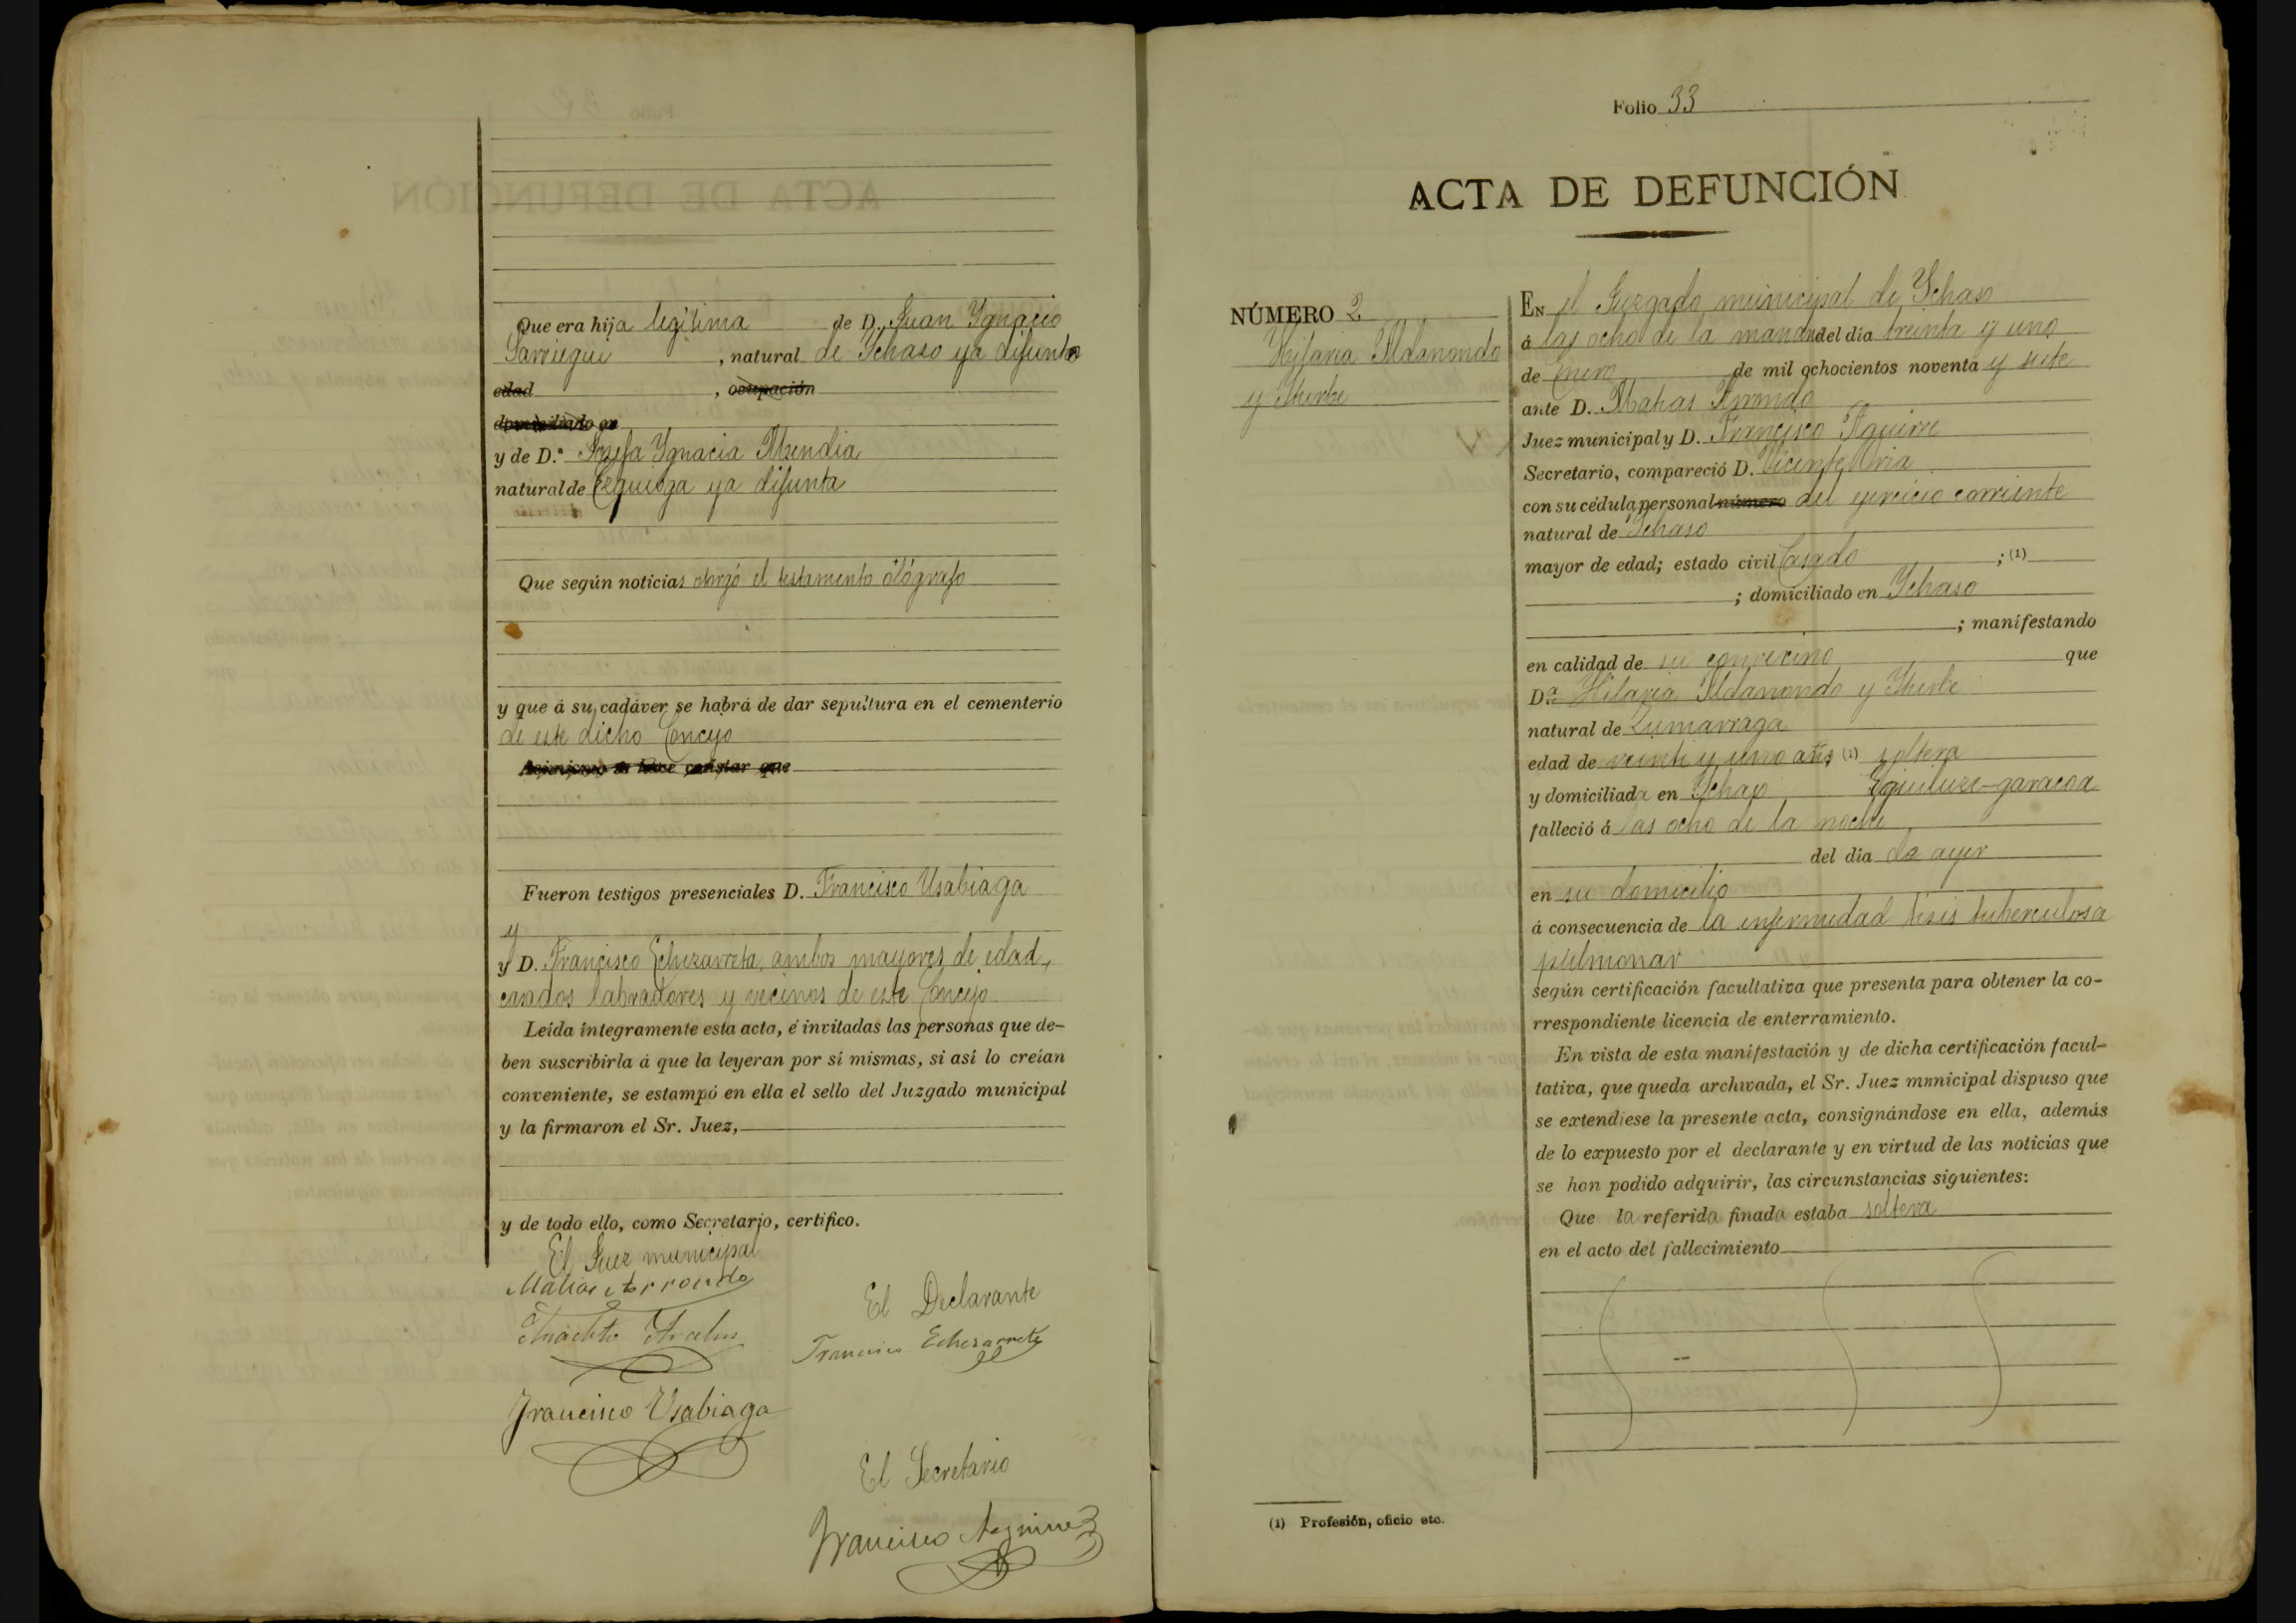 Que era hija legítima de D. Juan Ygnacio
Sarriegui, natural de Ychaso ya difunto
edad , ocupación
domiciliado en
y de D.ª Josefa Ygnacia Mendia
natural de Ezquioga ya difunta
Que según noticias otorgó el testamento ológrafo
y que á su cadáver se habrá de dar sepultura en el cementerio
de este dicho Concejo
Asimismo se hace constar que
Fueron testigos presenciales D. Francisco Usabiaga
y
y D. Francisco Echezarreta, ambos mayores de edad,
casados labradores y vecinos de este Concejo
Leída íntegramente esta acta, é invitadas las personas que de-
ben suscribirla á que la leyeran por sí mismas, si así lo creían
conveniente, se estampó en ella el sello del Juzgado municipal
y la firmaron el Sr. Juez,
y de todo ello, como Secretario, certifico.
El Juez municipal
Matias Arrondo
El Declarante
Francisco Echezarreta
Francisco Usabiaga
El Secretario
Francisco Aguirre
Folio 33
ACTA DE DEFUNCIÓN
NÚMERO 2
Hilaria Aldanondo
y Yturbe
EN el Juzgado municipal de Ychaso
á las ocho de la mañana del dia treinta y uno
de Enero de mil ochocientos noventa y siete
ante D. Matias Arrondo
Juez municipal y D. Francisco Aguirre
Secretario, compareció D. Vicente Oria
con su cédula personal número del ejercicio corriente
natural de Ychaso
mayor de edad; estado civil Casado ; (1)
; domiciliado en Ychaso
; manifestando
en calidad de su convecino que
D.ª Hilaria Aldanondo y Yturbe
natural de Zumarraga
edad de veinte y uno años (1) soltera
y domiciliada en Ychaso Eguiluze-garacoa
falleció á las ocho de la noche
del dia de ayer
en su domicilio
á consecuencia de la enfermedad tisis tuberculosa
pulmonar
según certificación facultativa que presenta para obtener la co-
rrespondiente licencia de enterramiento.
En vista de esta manifestación y de dicha certificación facul-
tativa, que queda archivada, el Sr. Juez mnnicipal dispuso que
se extendiese la presente acta, consignándose en ella, además
de lo expuesto por el declarante y en virtud de las noticias que
se han podido adquirir, las circunstancias siguientes:
Que la referida finada estaba soltera
en el acto del fallecimiento
(1) Profesión, oficio etc.